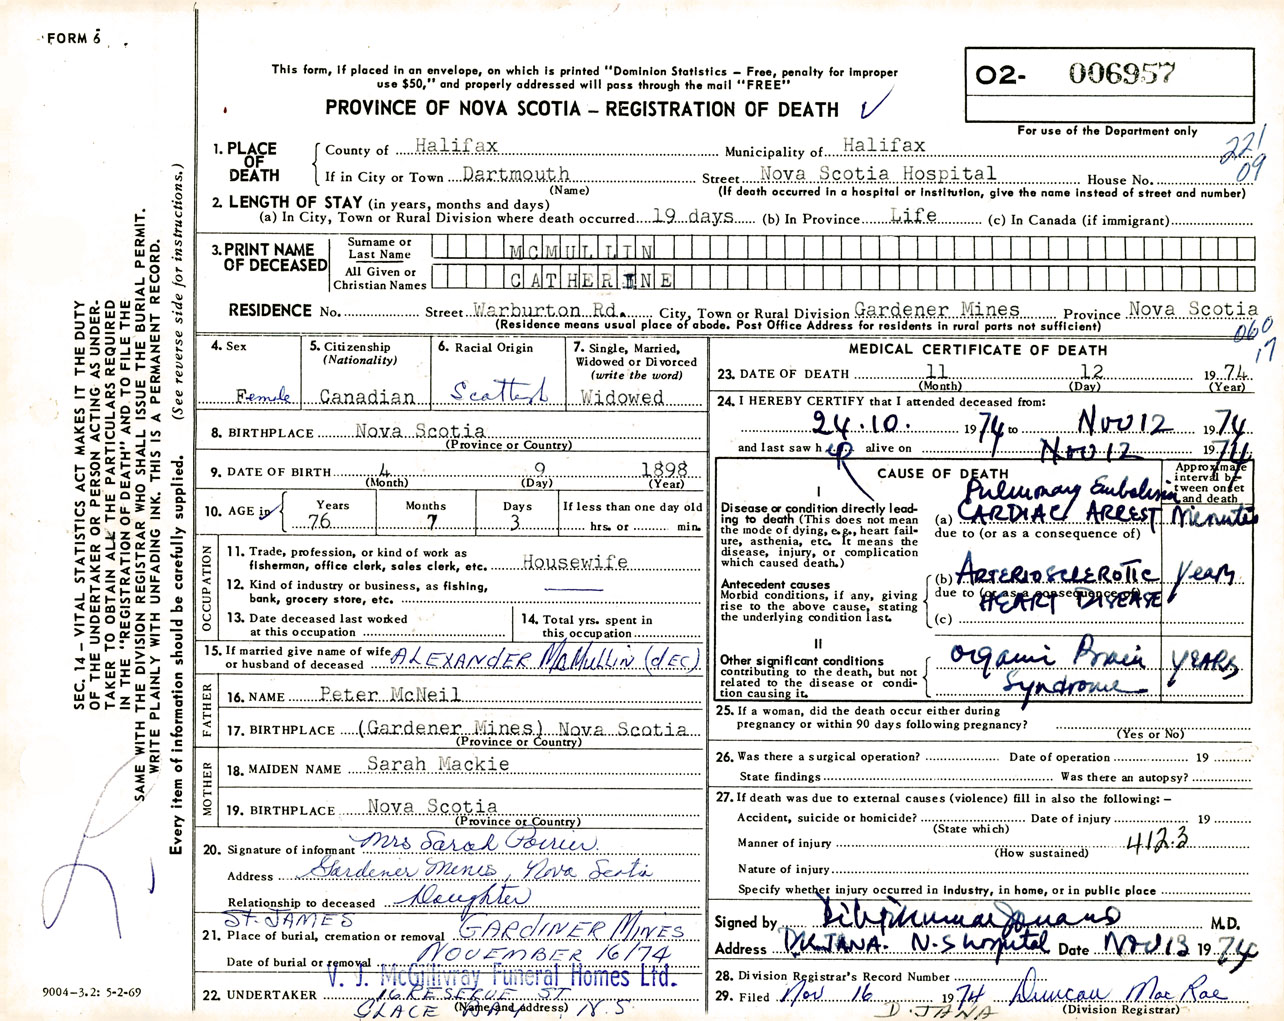 FORM 6
This form, if placed in an envelope, on which is printed "Dominion Statistics – Free, penalty for improper
use $50," and properly addressed will pass through the mail "FREE"
PROVINCE OF NOVA SCOTIA – REGISTRATION OF DEATH
02- 006957
For use of the Department only
221
09
1. PLACE OF DEATH
County of Halifax Municipality of Halifax
If in City or Town Dartmouth Street Nova Scotia Hospital House No.
(Name) (If death occurred in a hospital or institution, give the name instead of street and number)
2. LENGTH OF STAY (in years, months and days)
(a) In City, Town or Rural Division where death occurred 19 days (b) In Province Life (c) In Canada (if immigrant)
3. PRINT NAME OF DECEASED
Surname or Last Name MCMULLIN
All Given or Christian Names CATHERINE
RESIDENCE No. Street Warburton Rd. City, Town or Rural Division Gardener Mines Province Nova Scotia
(Residence means usual place of abode. Post Office Address for residents in rural parts not sufficient)
060
17
4. Sex
Female
5. Citizenship
(Nationality)
Canadian
6. Racial Origin
Scottish
7. Single, Married,
Widowed or Divorced
(write the word)
Widowed
8. BIRTHPLACE Nova Scotia
(Province or Country)
9. DATE OF BIRTH 4 9 1898
(Month) (Day) (Year)
10. AGE in
Years 76
Months 7
Days 3
If less than one day old
hrs. or min.
OCCUPATION
11. Trade, profession, or kind of work as
fisherman, office clerk, sales clerk, etc. Housewife
12. Kind of industry or business, as fishing,
bank, grocery store, etc.
13. Date deceased last worked
at this occupation
14. Total yrs. spent in
this occupation
15. If married give name of wife
or husband of deceased ALEXANDER McMULLIN (dEC)
FATHER
16. NAME Peter McNeil
17. BIRTHPLACE (Gardener Mines) Nova Scotia
(Province or Country)
MOTHER
18. MAIDEN NAME Sarah Mackie
19. BIRTHPLACE Nova Scotia
(Province or Country)
20. Signature of informant Mrs Sarah Poirier
Address Gardener Mines, Nova Scotia
Relationship to deceased Daughter
ST. JAMES
21. Place of burial, cremation or removal GARDINER MINES
Date of burial or removal NOVEMBER 16/74
V. J. McGillivray Funeral Homes Ltd.
22. UNDERTAKER 16 RESERVE ST
(Name and address)
GLACE BAY, N.S
MEDICAL CERTIFICATE OF DEATH
23. DATE OF DEATH 11 12 1974
(Month) (Day) (Year)
24. I HEREBY CERTIFY that I attended deceased from:
24.10. 1974 to Nov 12 1974
and last saw her alive on Nov 12 1974
CAUSE OF DEATH
Approximate
interval be-
tween onset
and death
I
Disease or condition directly lead-
ing to death (This does not mean
the mode of dying, e.g., heart fail-
ure, asthenia, etc. It means the
disease, injury, or complication
which caused death.)
Pulmonary Embolism
(a) CARDIAC ARREST Minutes
due to (or as a consequence of)
Antecedent causes
Morbid conditions, if any, giving
rise to the above cause, stating
the underlying condition last.
(b) ARTERIOSCLEROTIC Years
due to (or as a consequence of)
HEART DISEASE
(c)
II
Other significant conditions
contributing to the death, but not
related to the disease or condi-
tion causing it.
Organic Brain YEARS
Syndrome
25. If a woman, did the death occur either during
pregnancy or within 90 days following pregnancy?
(Yes or No)
26. Was there a surgical operation? Date of operation 19
State findings Was there an autopsy?
27. If death was due to external causes (violence) fill in also the following: –
Accident, suicide or homicide? Date of injury 19
(State which)
Manner of injury 412.3
(How sustained)
Nature of injury
Specify whether injury occurred in industry, in home, or in public place
Signed by M.D.
Address DR JANA. N.S Hospital Date Nov 13 1974
28. Division Registrar's Record Number
29. Filed Nov 16 1974 Duncan MacRae
(Division Registrar)
D. JANA
SEC. 14 – VITAL STATISTICS ACT MAKES IT THE DUTY
OF THE UNDERTAKER OR PERSON ACTING AS UNDER-
TAKER TO OBTAIN ALL THE PARTICULARS REQUIRED
IN THE "REGISTRATION OF DEATH" AND TO FILE THE
SAME WITH THE DIVISION REGISTRAR WHO SHALL ISSUE THE BURIAL PERMIT.
WRITE PLAINLY WITH UNFADING INK. THIS IS A PERMANENT RECORD.
Every item of information should be carefully supplied. (See reverse side for instructions.)
9004-3.2: 5-2-69